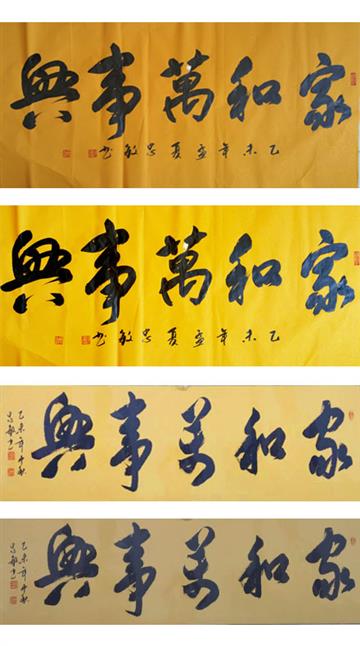 家和萬事興
乙未年孟夏忠敏书
家和萬事興
乙未年孟夏忠敏书
家和萬事興
乙未年中秋
忠敏书
家和萬事興
乙未年中秋
忠敏书